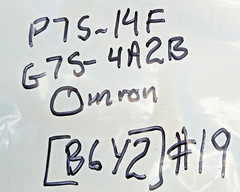 P7S-14F
G7S-4A2B
Omron
[B6Y2]#19